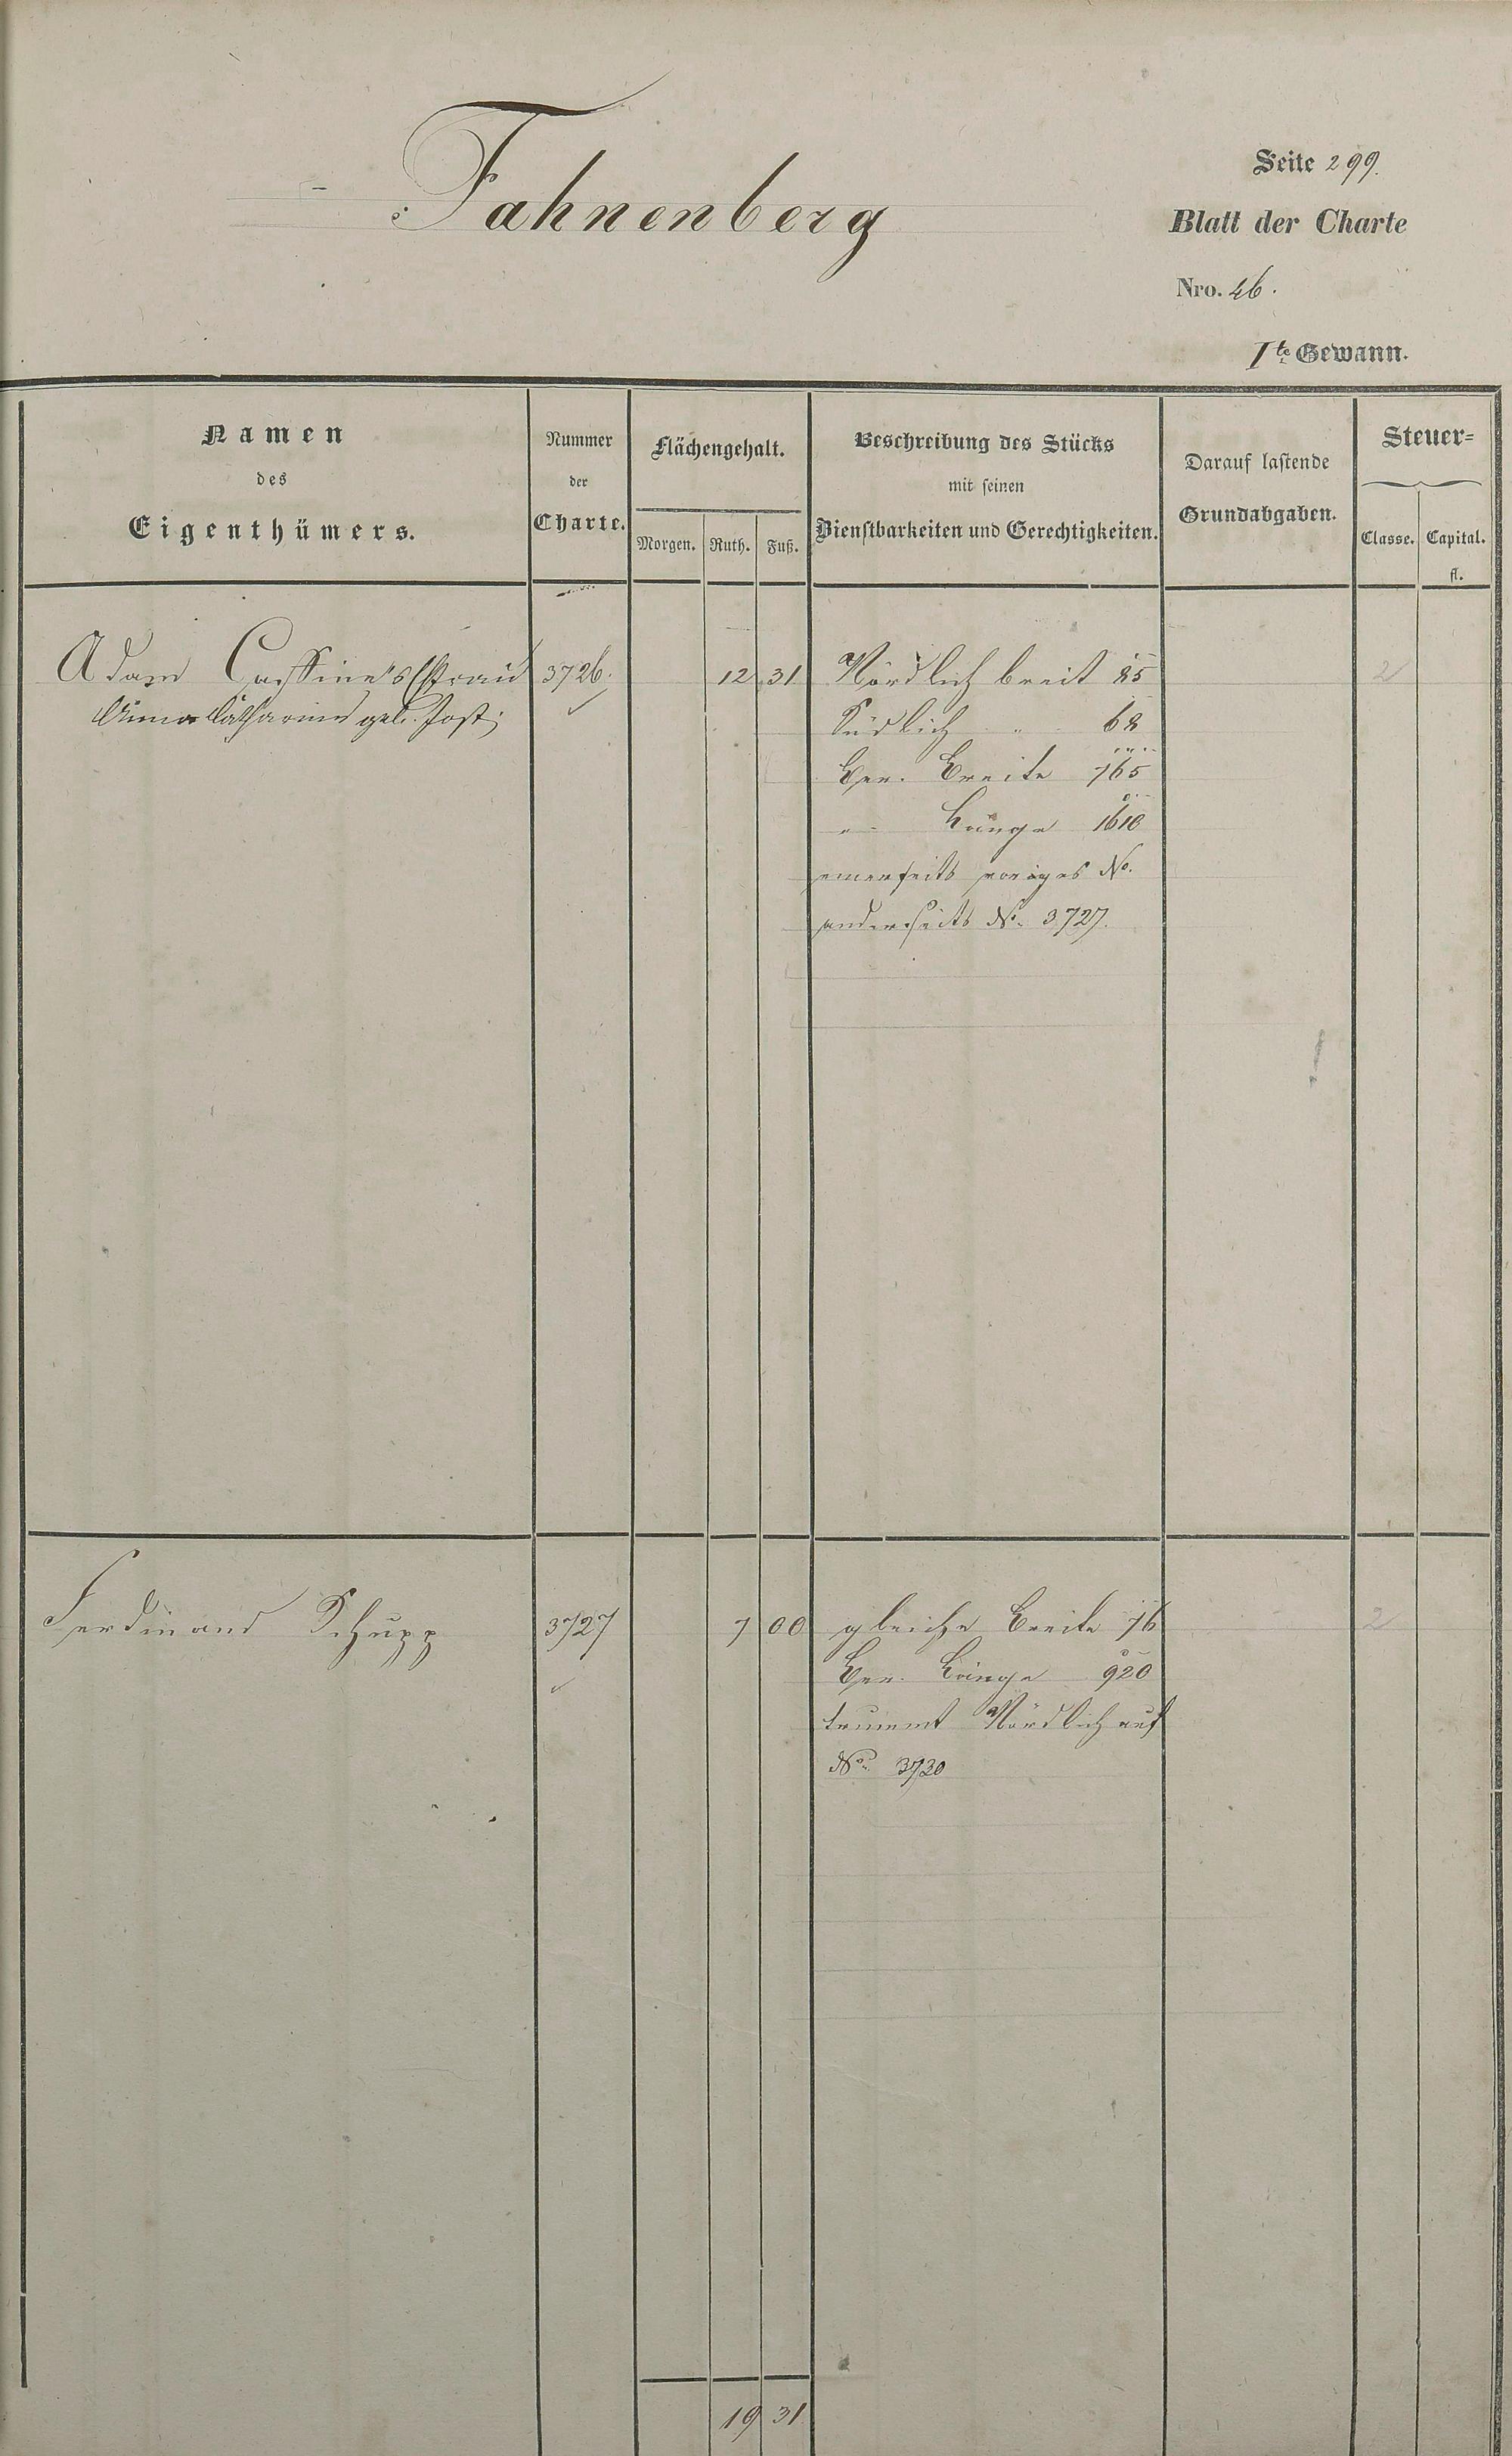 Fahnenberg
Seite 299.
Blatt der Charte
Nro. 46.
1te Gewann.
Namen
des
Eigenthümers.
Nummer
der
Charte.
Flächengehalt.
Morgen. Ruth. Fuß.
Beschreibung des Stücks
mit seinen
Dienstbarkeiten und Gerechtigkeiten.
Darauf lastende
Grundabgaben.
Steuer-
Classe. Capital.
fl.
Adam Cassine's Ehfrau 3726. 12 31 Nördlich breit 85 2
Anna Catharina geb. Jost;
Südlich " 68
Ger. Breite 765
" Länge 1610
einerseits voriges No.
anderseits No. 3727.
Ferdinand Schupp 3727 7 00 gleiche Breite 76 2
Ger. Länge 920
Nördlich auf
No. 3730
19 31